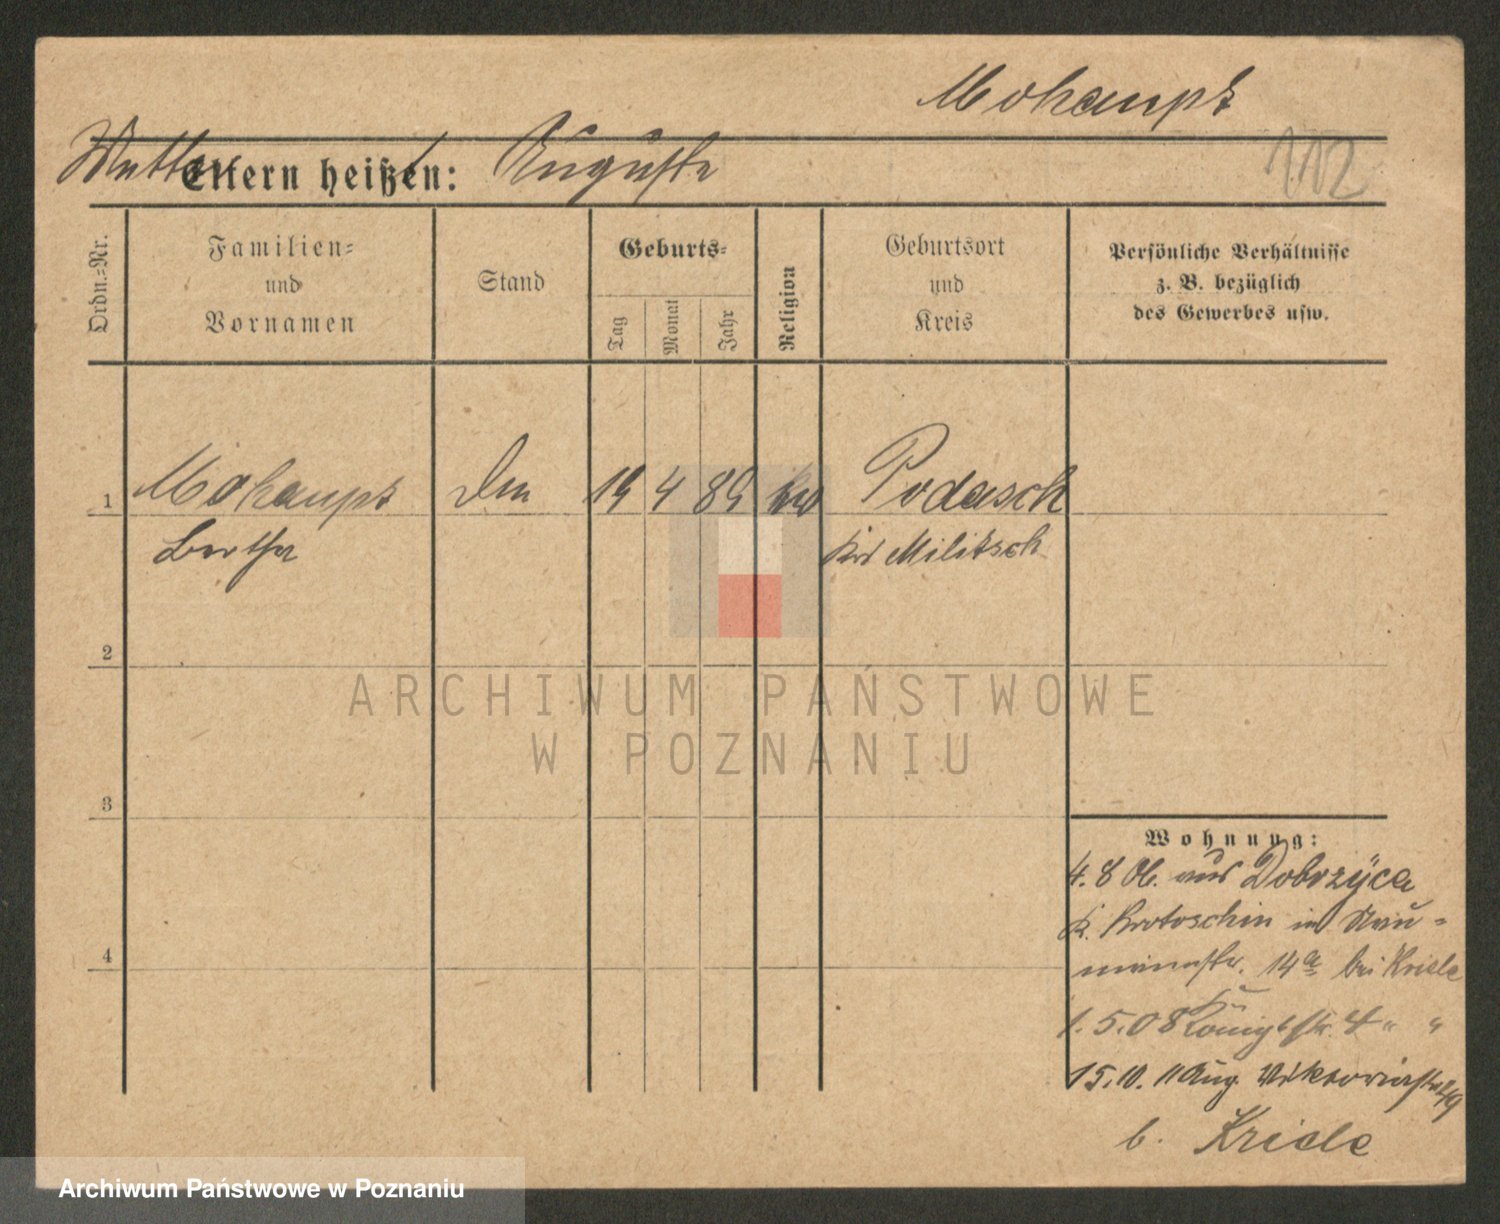 Mohaupt
Mutter
Eltern heißen: Auguste
112
Ordn.-Nr.
Familien-
und
Vornamen
Stand
Geburts-
Tag
Monat
Jahr
Religion
Geburtsort
und
Kreis
Persönliche Verhältnisse
z. B. bezüglich
des Gewerbes usw.
1 Mohaupt 19 4 89 Podasch
Bertha Militsch
2
ARCHIWUM PAŃSTWOWE
W POZNANIU
3
Wohnung:
4. 8 06. aus Dobrzÿca
K. Krotoschin in Nau-
mannstr. 14a bei Kriele
1. 5. 08 Königstr. 4 " "
15. 10. 11 Aug. Viktoriastr.
4
b. Kriele
Archiwum Państwowe w Poznaniu